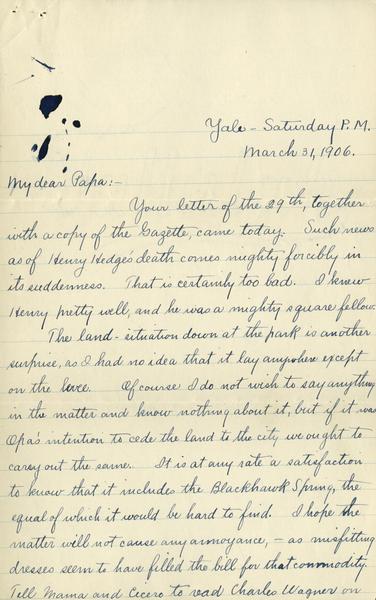 Yale - Saturday P.M.
March 31, 1906.
My dear Papa:-
Your letter of the 29th, together
with a copy of the Gazette, came today. Such news
as of Henry Hedge's death comes mighty forcibly in
its suddenness. That is certainly too bad. I knew
Henry pretty well, and he was a mighty square fellow.
The land-situation down at the park is another
surprise, as I had no idea that it lay anywhere except
on the levee. Of course I do not wish to say anything
in the matter and know nothing about it, but if it was
Opa's intention to cede the land to the city, we ought to
carry out the same. It is at any rate a satisfaction
to know that it includes the Blackhawk Spring, the
equal of which it would be hard to find. I hope the
matter will not cause any annoyance, - as misfitting
dresses seem to have filled the bill for that commodity.
Tell Mama and Cicero to read Charles Wagner on